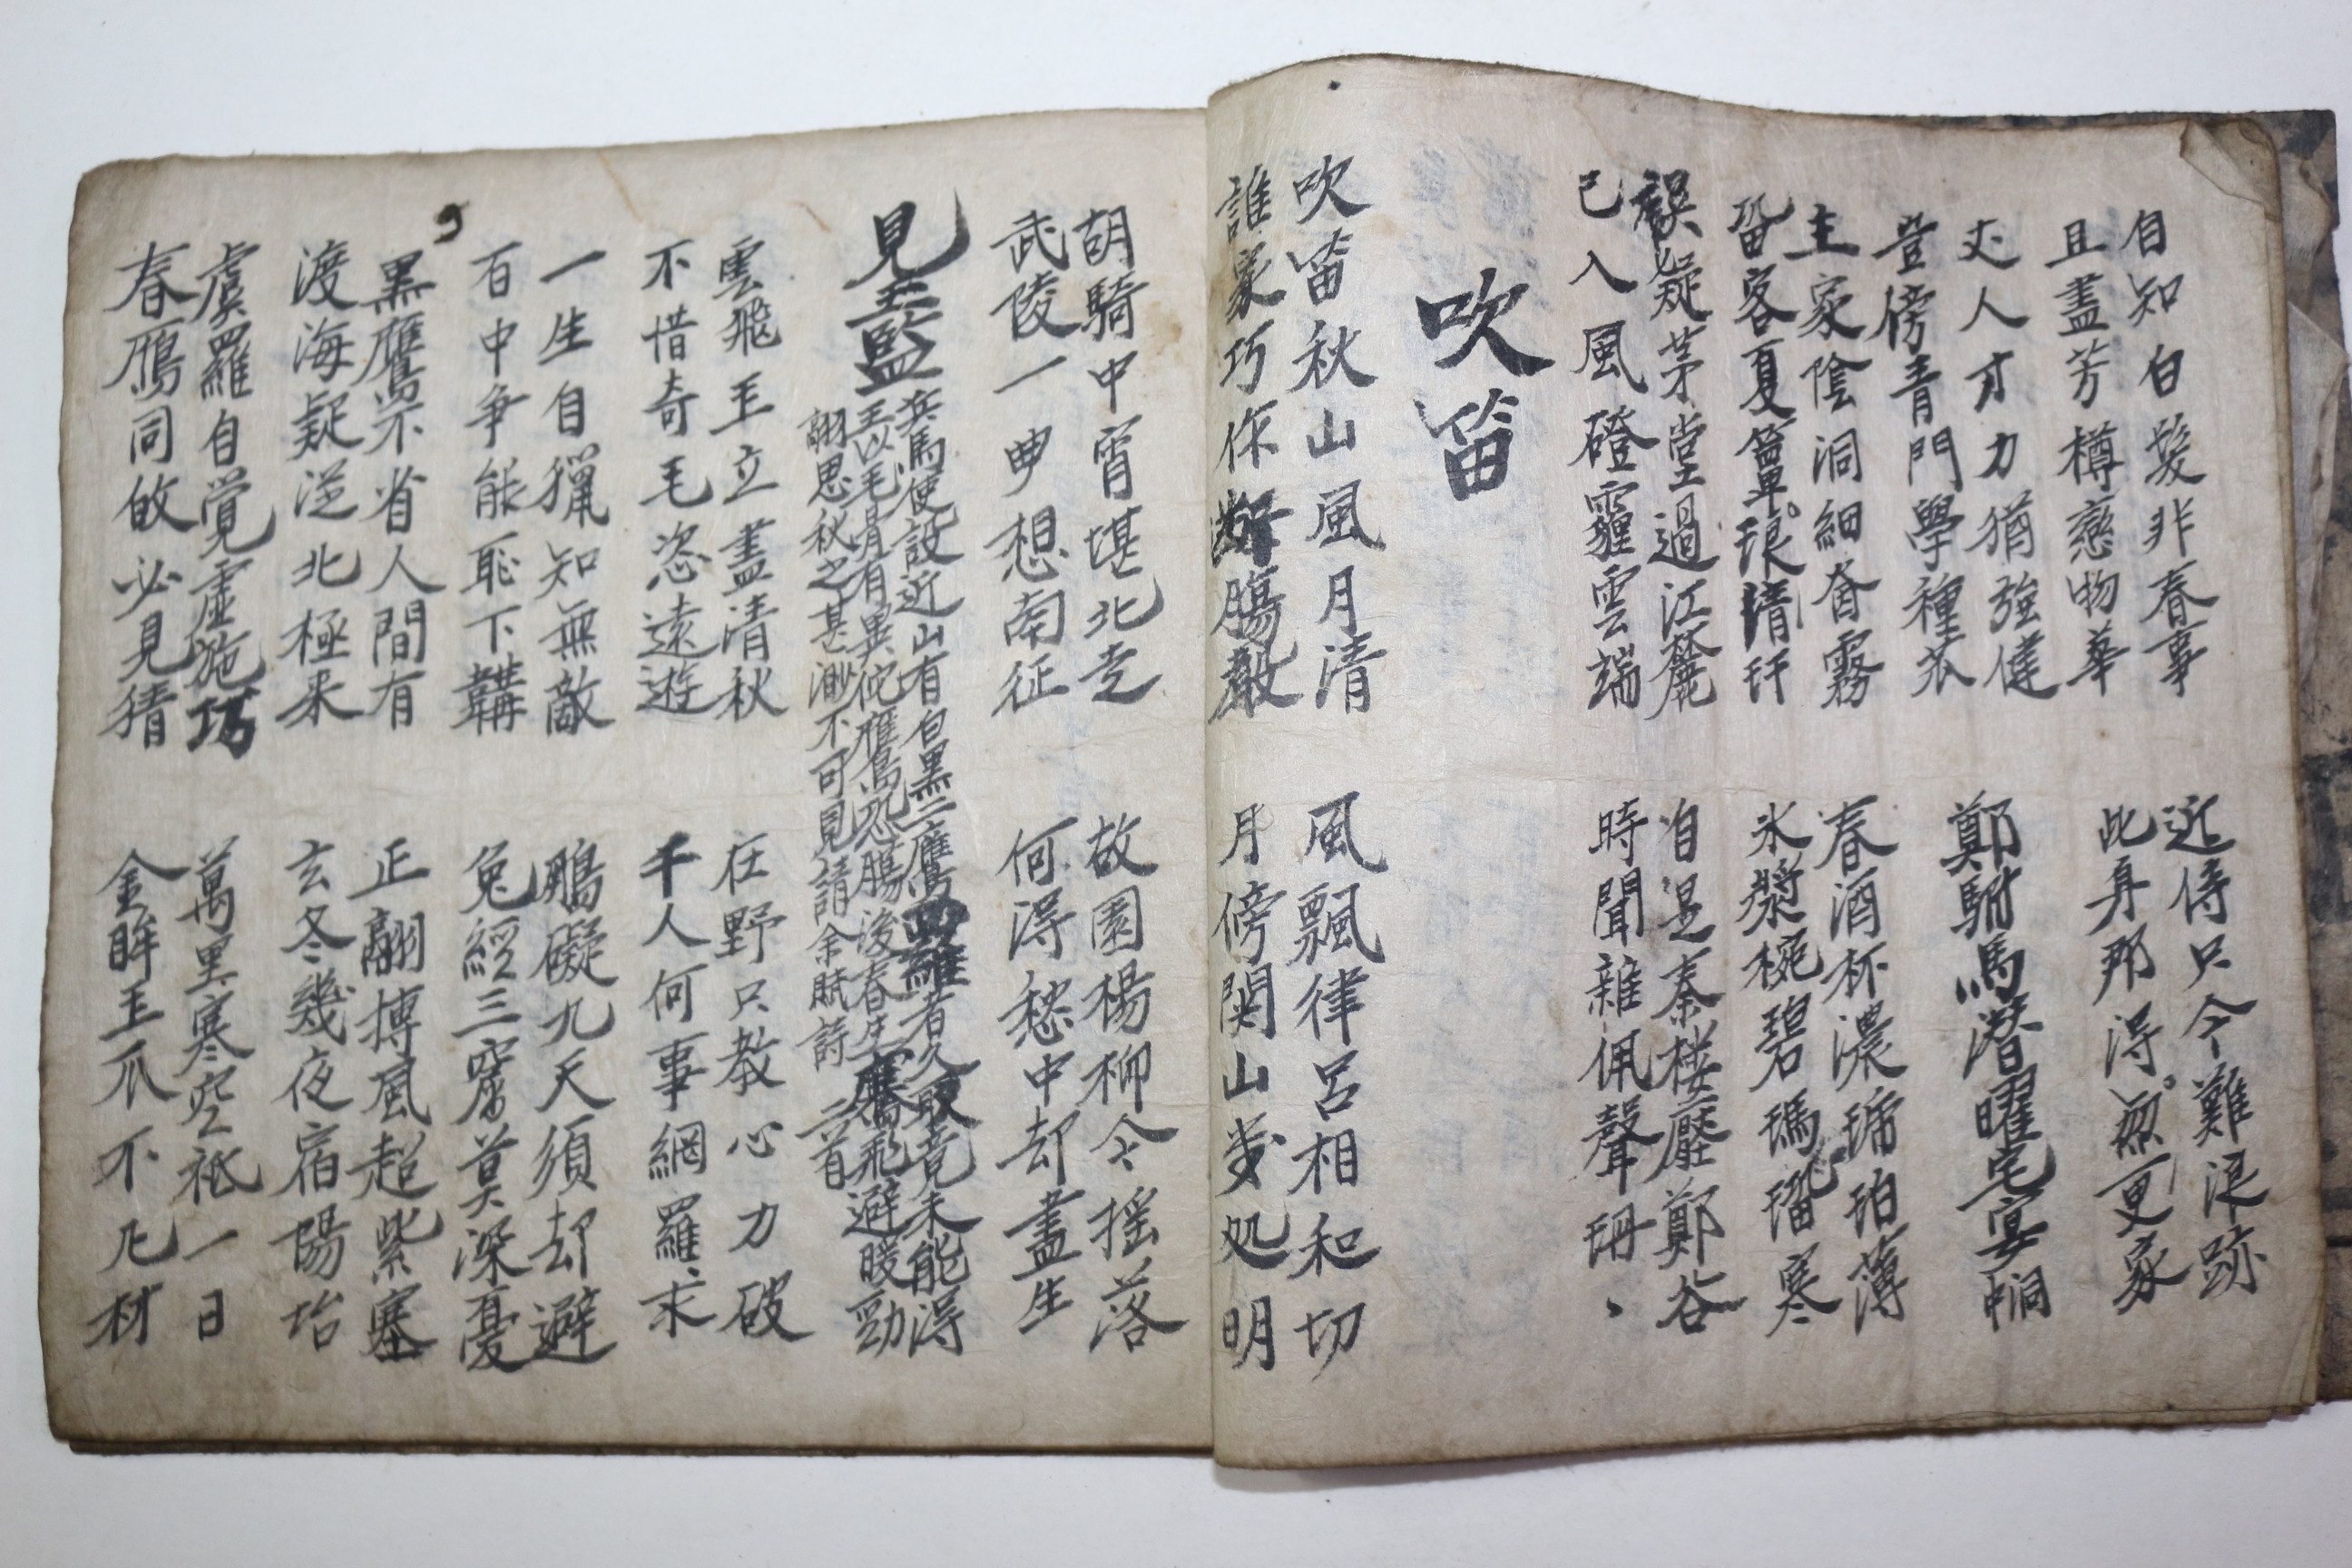 自知白髮非春事
且盡芳樽戀物華
近侍只今難浪跡
此身那得無更家
丈人才力猶強健
豈傍青門學種苽
鄭駙馬潛曜宅宴洞
主家陰洞細雰霧
留客夏簟琅清玕
春酒杯濃琥珀薄
氷漿椀碧瑪瑙寒
誤疑茅堂過江麓
已入風磴霾雲端
自是秦楼壓鄭谷
時聞雜佩聲珊、
吹笛
吹笛秋山風月清
誰家巧作斷腸聲
風飄律呂相和切
月傍関山幾処明
胡騎中宵堪北走
武陵一曲想南征
故園楊柳今揺落
何得愁中却盡生
見王監
兵馬使設近山有白黑二鷹羅者久取竟未能得
王以毛骨有異佗鷹恐臈後春生騫飛避暖勁
翮思秋之甚渺不可見請余賦詩二首
雲飛玉立盡清秋
不惜奇毛恣遠遊
在野只教心力破
千人何事網羅求
一生自獵知無敵
百中争能恥下鞲
鵬礙九天須却避
兔經三窟莫深憂
黑鷹不省人間有
渡海疑從北極来
正翮摶風超紫塞
玄冬幾夜宿陽坮
虞羅自覚虛施巧
春鴈同敀必見猜
萬里寒空秖一日
金眸玉爪不凡材